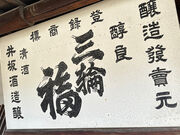 醸造發賣元
醇良
登録商標
三輪福
清酒
井坂酒造醸